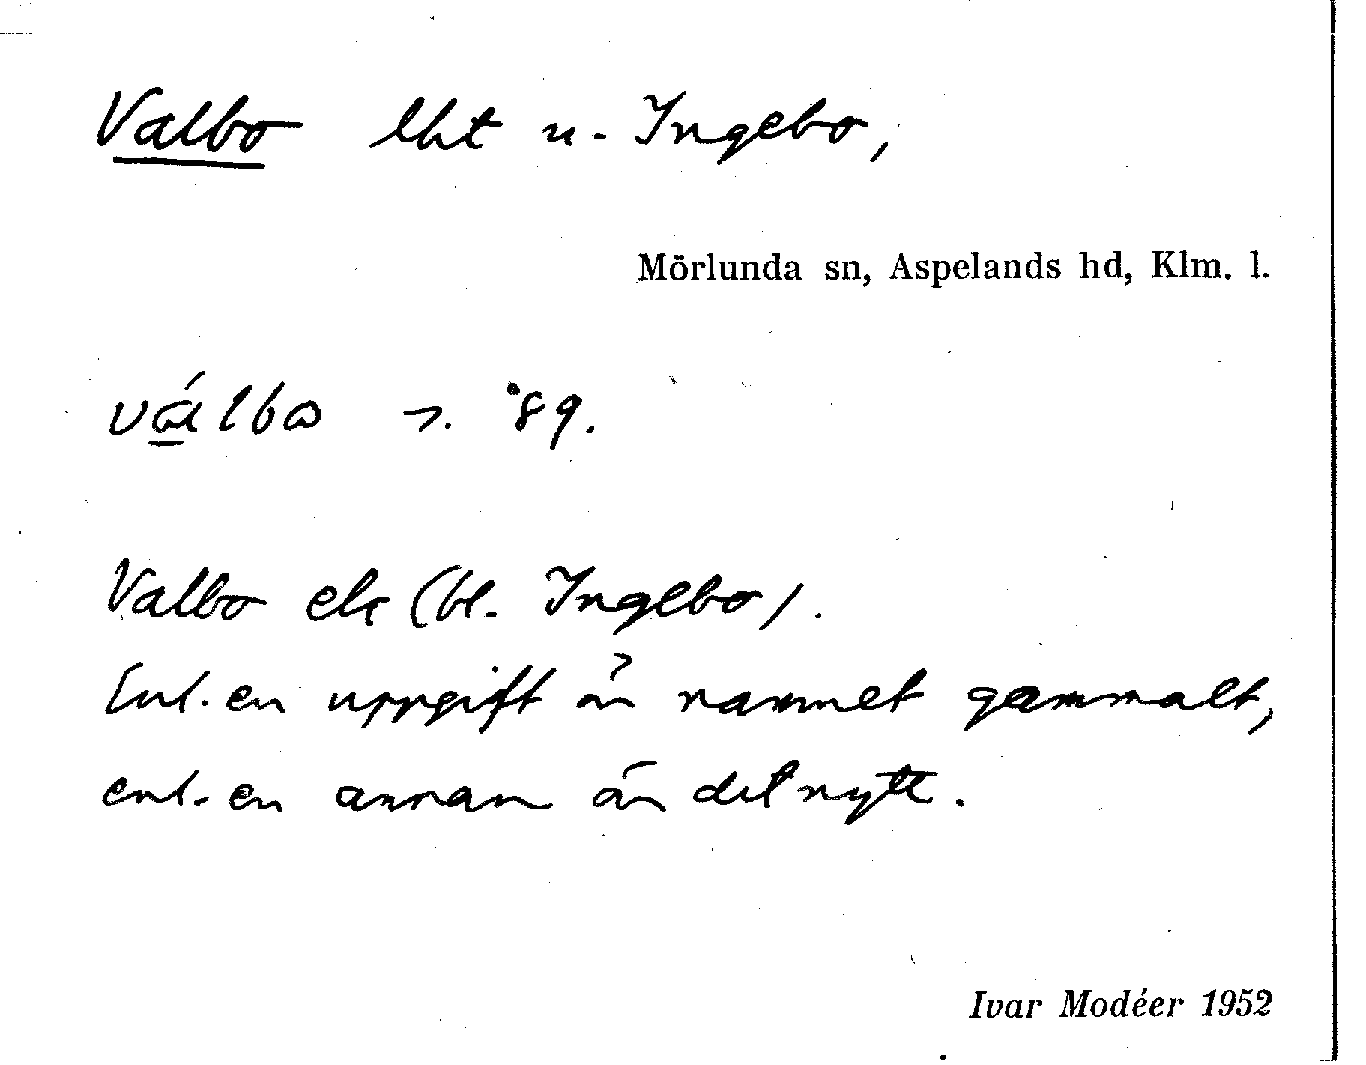 Valbo lht u. Ingebo,
Mörlunda sn, Aspelands hd, Klm. l.
válbo
89.
Valbo ek (bl. Ingebo).
Enl. en uppgift är namnet gammalt,
enl. en annan är det nytt.
Ivar Modéer 1952